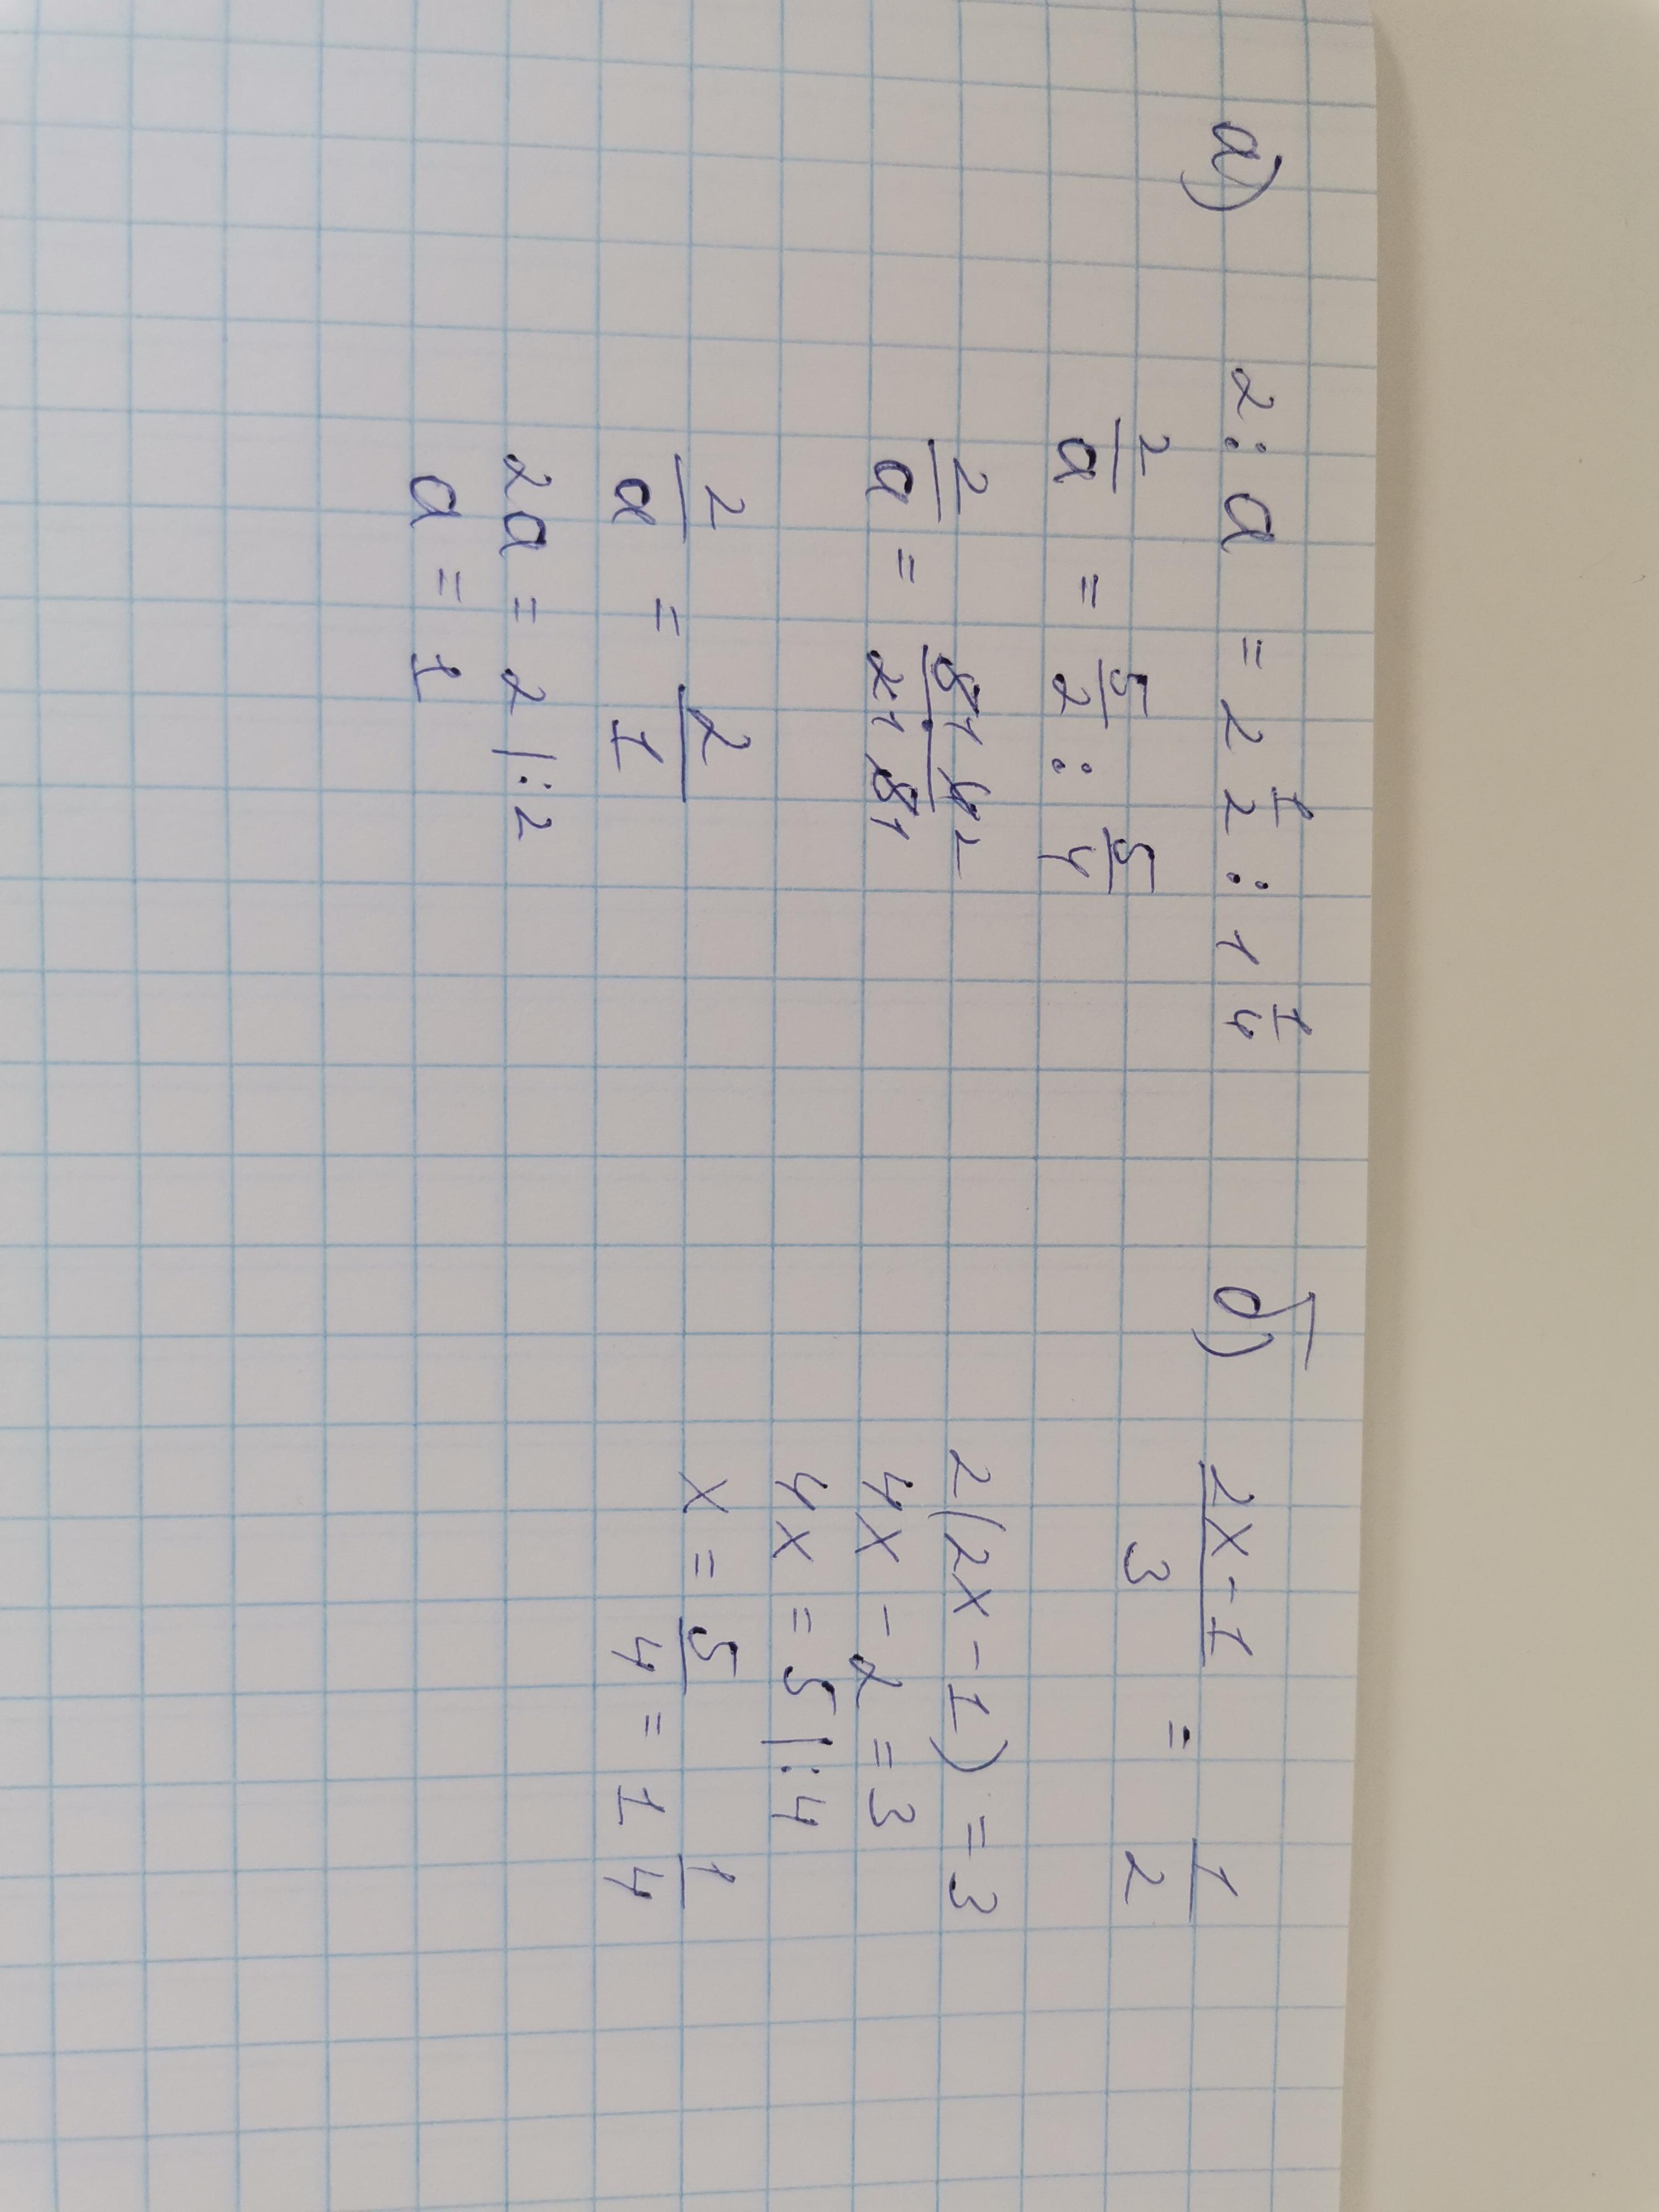 а) 2 : a = 2 1/2 : 1 1/4
2/a = 5/2 : 5/4
2/a = 5 1 · 4 2 / 2 1 · 5 1
2/a = 2/1
2a = 2 |:2
a = 1
б) (2x - 1)/3 = 1/2
2(2x - 1) = 3
4x - 2 = 3
4x = 5 |:4
x = 5/4 = 1 1/4